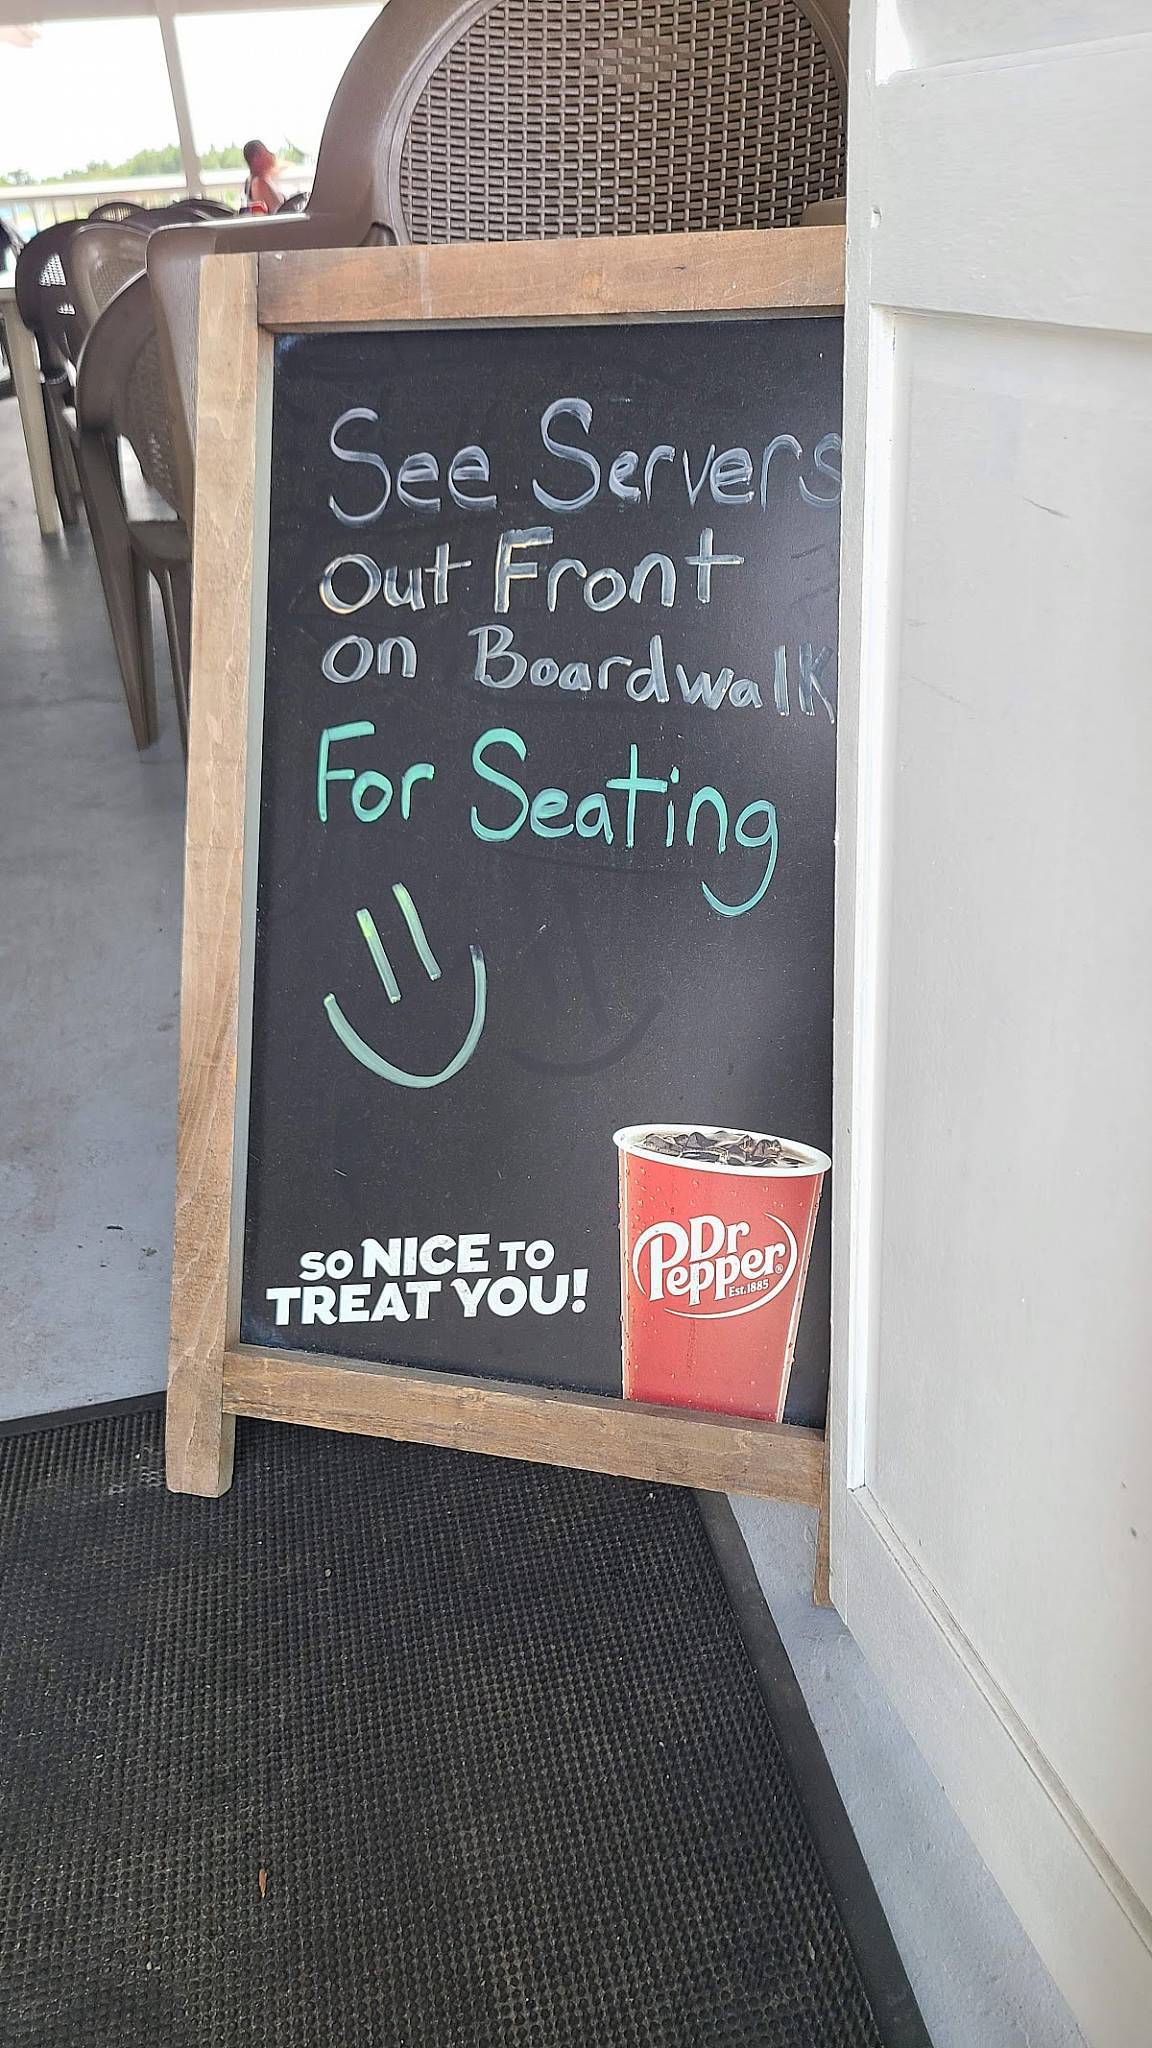 See Servers
Out Front
on Boardwalk
For Seating
SO NICE TO
TREAT YOU!
Dr
Pepper®
Est.1885